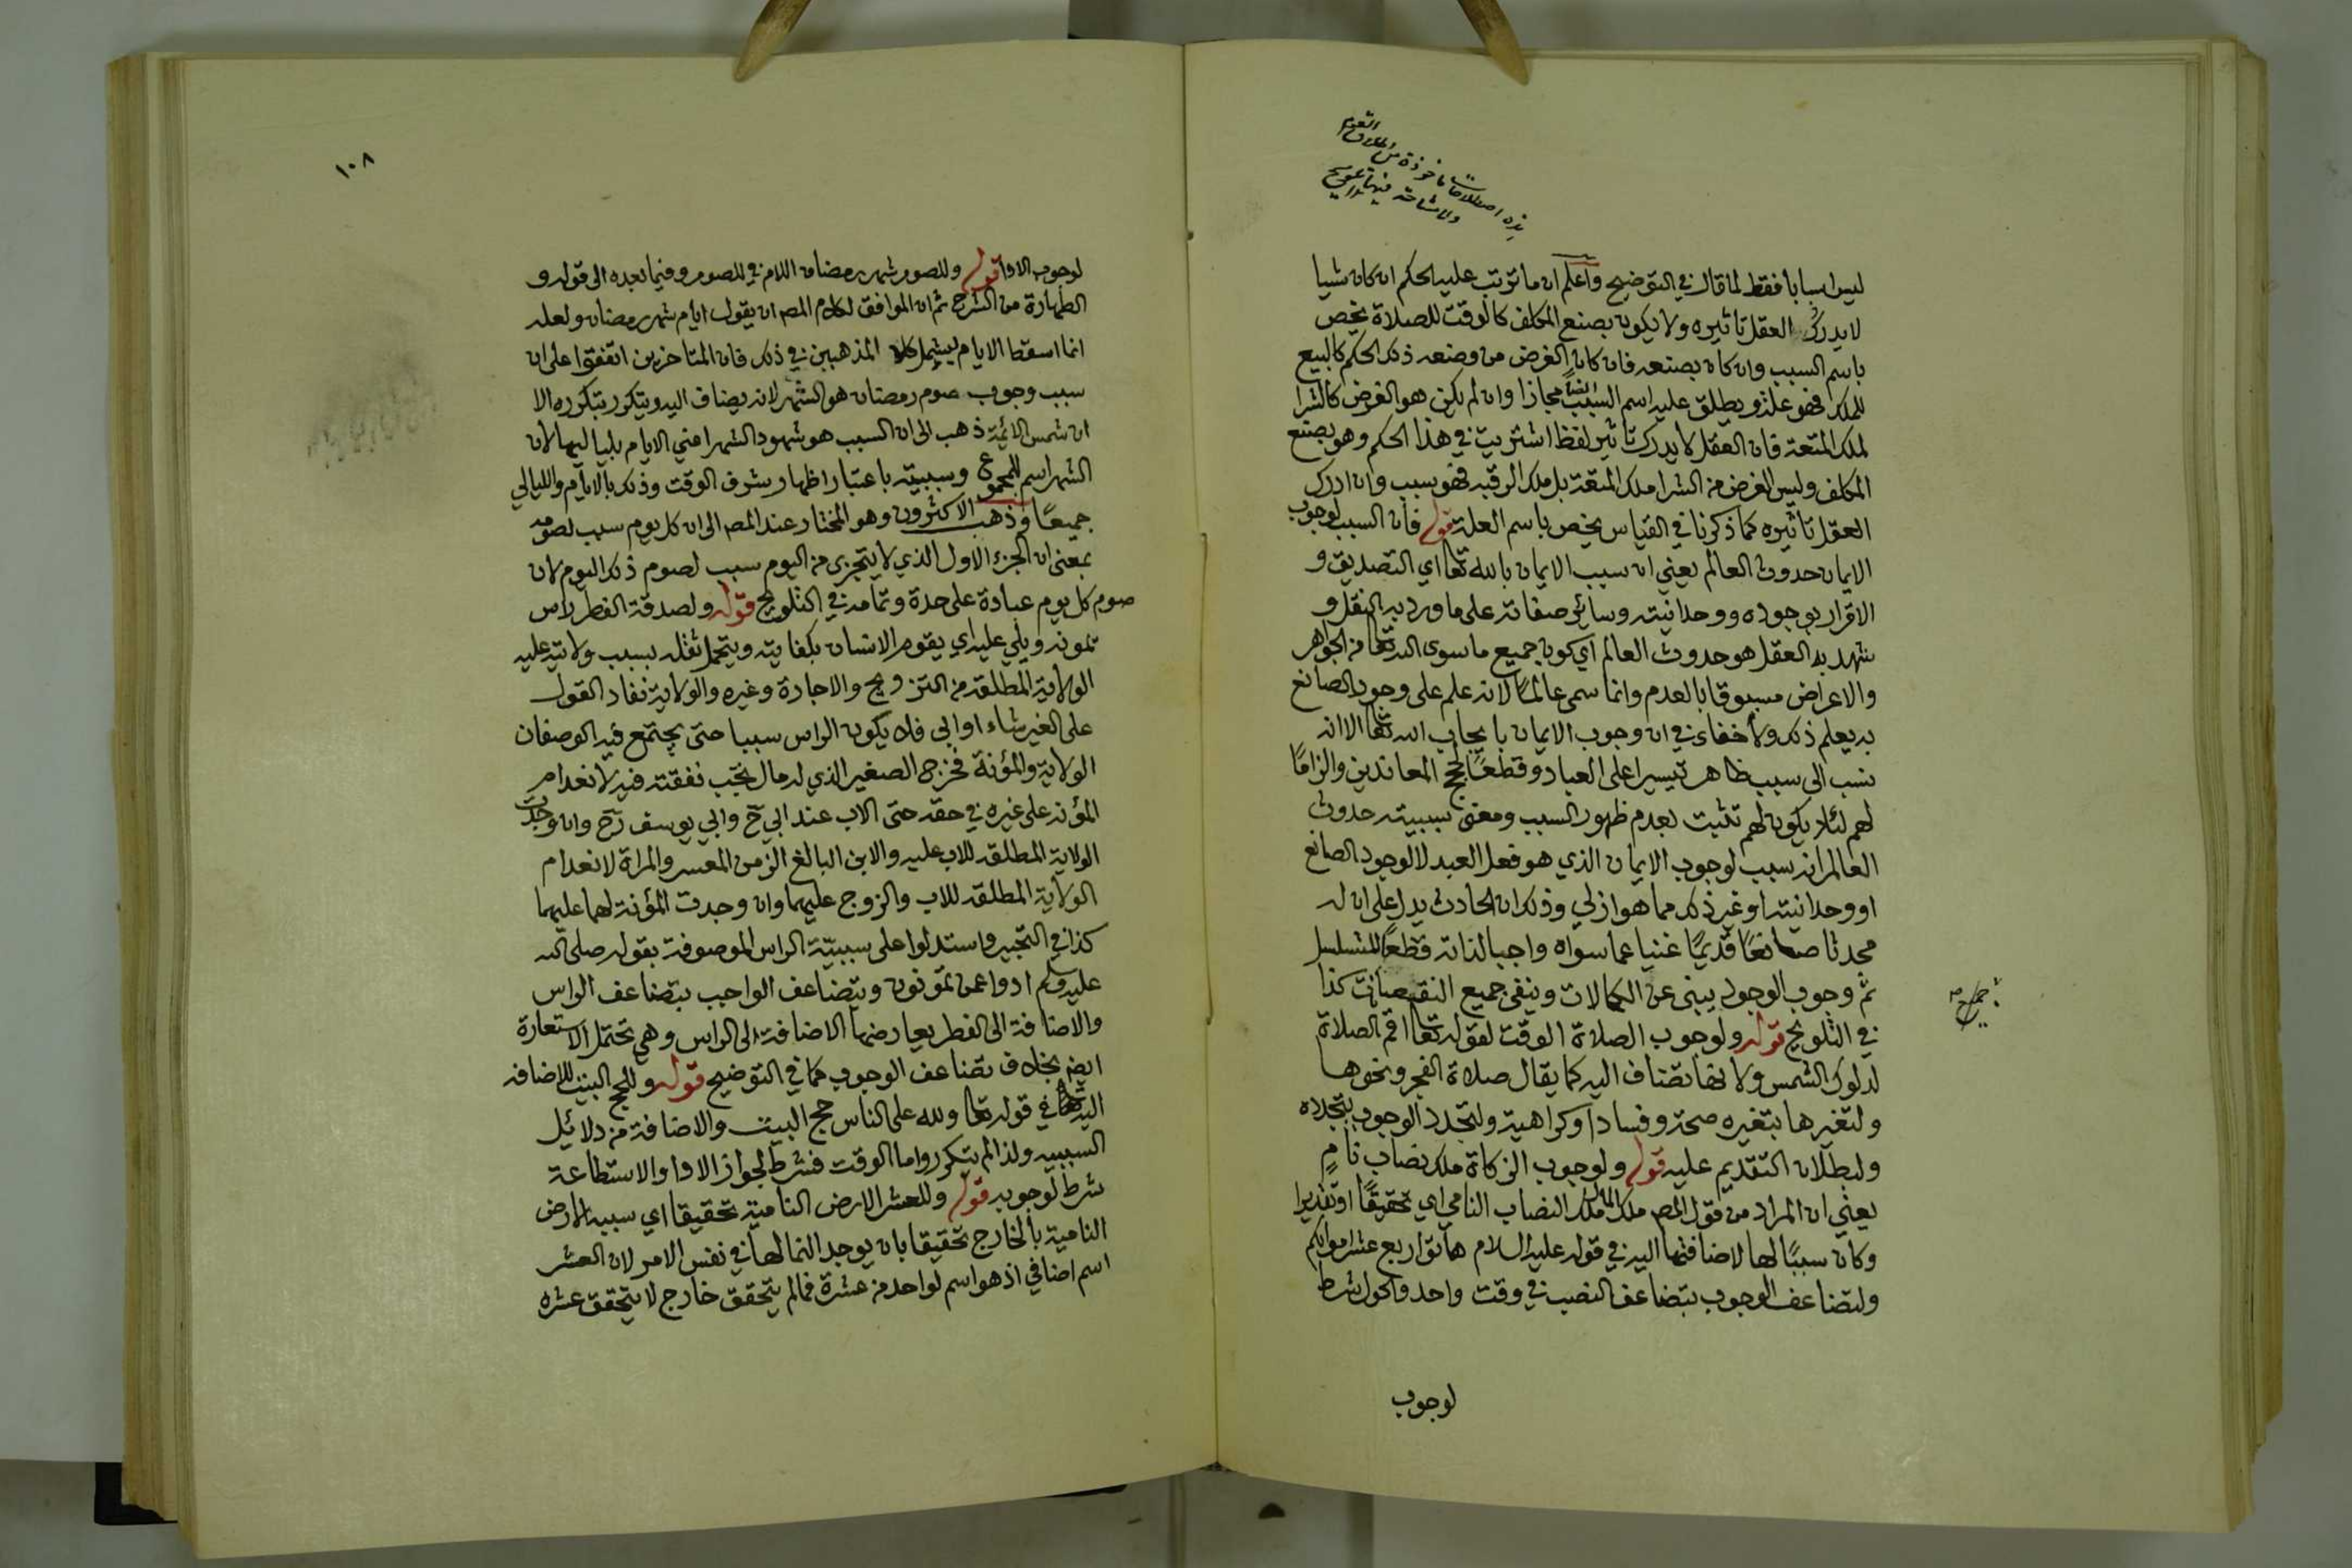 هذه اصطلاحات ماخوذة من اطلاق القوم
ولا مشاحة فيها تلويح
ليس اسبابا فقط لما قال في التوضيح واعلم ان ما ترتب عليه الحكم ان كان شيا
لا يدرك العقل تاثيره ولا يكون بصنع المكلف كالوقت للصلاة يخص
باسم السبب وان كان بصنعه فان كان الغرض من وضعه ذلك الحكم كالبيع
للملك فهو علة ويطلق عليه اسم السبب ايضا مجازا وان لم يكن هو الغرض كالشرا
لملك المتعة فان العقل لا يدرك تاثير لفظ اشتريت في هذا الحكم وهو بصنع
المكلف وليس الغرض من الشرا ملك المتعة بل ملك الرقبه فهو سبب وان ادرك
العقل تاثيره كما ذكرنا في القياس يخص باسم العلة قوله فان السبب لوجوب
الايمان حدوث العالم يعني ان سبب الايمان بالله تعا اي التصديق و
الاقرار بوجوده ووحدانيته وسائر صفاته على ما ورد به النقل و
شهد به العقل هو حدوث العالم اي كون جميع ما سوى الله تعا من الجواهر
والاعراض مسبوقا بالعدم وانما سمى عالمًا لانه علم على وجود الصانع
به يعلم ذلك ولا خفاء في ان وجوب الايمان بايجاب الله تعا الا انه
نسب الى سبب ظاهر تيسيرا على العباد وقطعًا لحجج المعاندين والزامًا
لهم لئلا يكون لهم تشبث بعدم ظهور السبب ومعنى سببيته حدوث
العالم انه سبب لوجوب الايمان الذي هو فعل العبد لا لوجود الصانع
او وحدانيته او غير ذلك مما هو ازلي وذلك ان الحادث يدل على ان له
محدثا صانعًا قديمًا غنيا عما سواه واجبا لذاته قطعًا للتسلسل
ثم وجوب الوجود يبنى عن الكمالات وينفى جميع النقصانات كذا
في التلويح قوله ولوجوب الصلاة الوقت لقوله تعا اقم الصلاة
لدلوك الشمس ولانها تضاف اليه كما يقال صلاة الفجر ونحوها
ولتغيرها بتغيره صحة وفسادا وكراهية ولتجدد الوجوب بتجدده
ولبطلان التقديم عليه قوله ولوجوب الزكاة ملك نصاب نامٍ
يعني ان المراد من قول المصـ ملك المال ملك النصاب النامي اي تحقيقًا او تقديرا
وكان سببًا لها لاضافتها اليه في قوله عليه السلام هاتوا ربع عشر اموالكم
ولتضاعف الوجوب بتضاعف النصب في وقت واحد والحول شرط
لوجوب
١٠٨
لوجوب الادا قوله وللصوم شهر رمضان اللام في للصوم وفيما بعده الى قوله و
الطهارة من الشرح ثم ان الموافق لكلام المصـ ان يقول ايام شهر رمضان ولعله
انما اسقط الايام ليشمل كلا المذهبين في ذلك فان المتاخرين اتفقوا على ان
سبب وجوب صوم رمضان هو الشهر لانه يضاف اليه ويتكرر بتكرره الا
ان شمس الائمة ذهب الى ان السبب هو شهود الشهر اعني الايام بلياليها لان
الشهر اسم للمجموع وسببيته باعتبار اظهار شرف الوقت وذلك بالايام والليالي
جميعًا وذهب الاكثرون وهو المختار عند المصـ الى ان كل يوم سبب لصومه
بمعنى ان الجزء الاول الذي لا يتجزى من اليوم سبب لصوم ذلك اليوم لان
صوم كل يوم عبادة على حدة وتمامه في التلويح قوله ولصدقة الفطر راس
تمونه ويلي عليه اي يقوم الانسان بكفايته ويتحمل ثقله بسبب ولايته عليه
الولاية المطلقة من التزويج والاجارة وغيره والولاية نفاد القول
على الغير شاء او ابى فلا يكون الراس سببا حتى يجتمع فيه الوصفان
الولاية والمؤنة فخرج الصغير الذي له مال تجب نفقته فيه لانعدام
المؤنه على غيره في حقه حتى الاب عند ابي ح وابي يوسف رح وان وجدت
الولاية المطلقه للاب عليه والابن البالغ الزمن المعسر والمراة لانعدام
الولاية المطلقه للاب والزوج عليهما وان وجدت المؤنة لهما عليهما
كذا في التحبير واستدلوا على سببيّة الراس الموصوفة بقوله صلى الله
عليه وسلم ادوا عمن تمونون ويتضاعف الواجب بتضاعف الراس
والاضافة الى الفطر يعارضها الاضافة الى الراس وهي تحتمل الاستعارة
ايضـ بخلاف تضاعف الوجوب كما في التوضيح قوله وللحج البيت للاضافه
اليه في قوله تعا ولله على الناس حج البيت والاضافة من دلائل
السببيه ولذا لم يتكرر واما الوقت فشرط لجواز الادا والاستطاعة
شرط لوجوبه قوله وللعشر الارض النامية تحقيقا اي سببه الارض
النامية بالخارج تحقيقا بان يوجد النما لها في نفس الامر لان العشر
اسم اضافي اذ هو اسم لواحد من عشرة فما لم يتحقق خارج لا يتحقق عشره